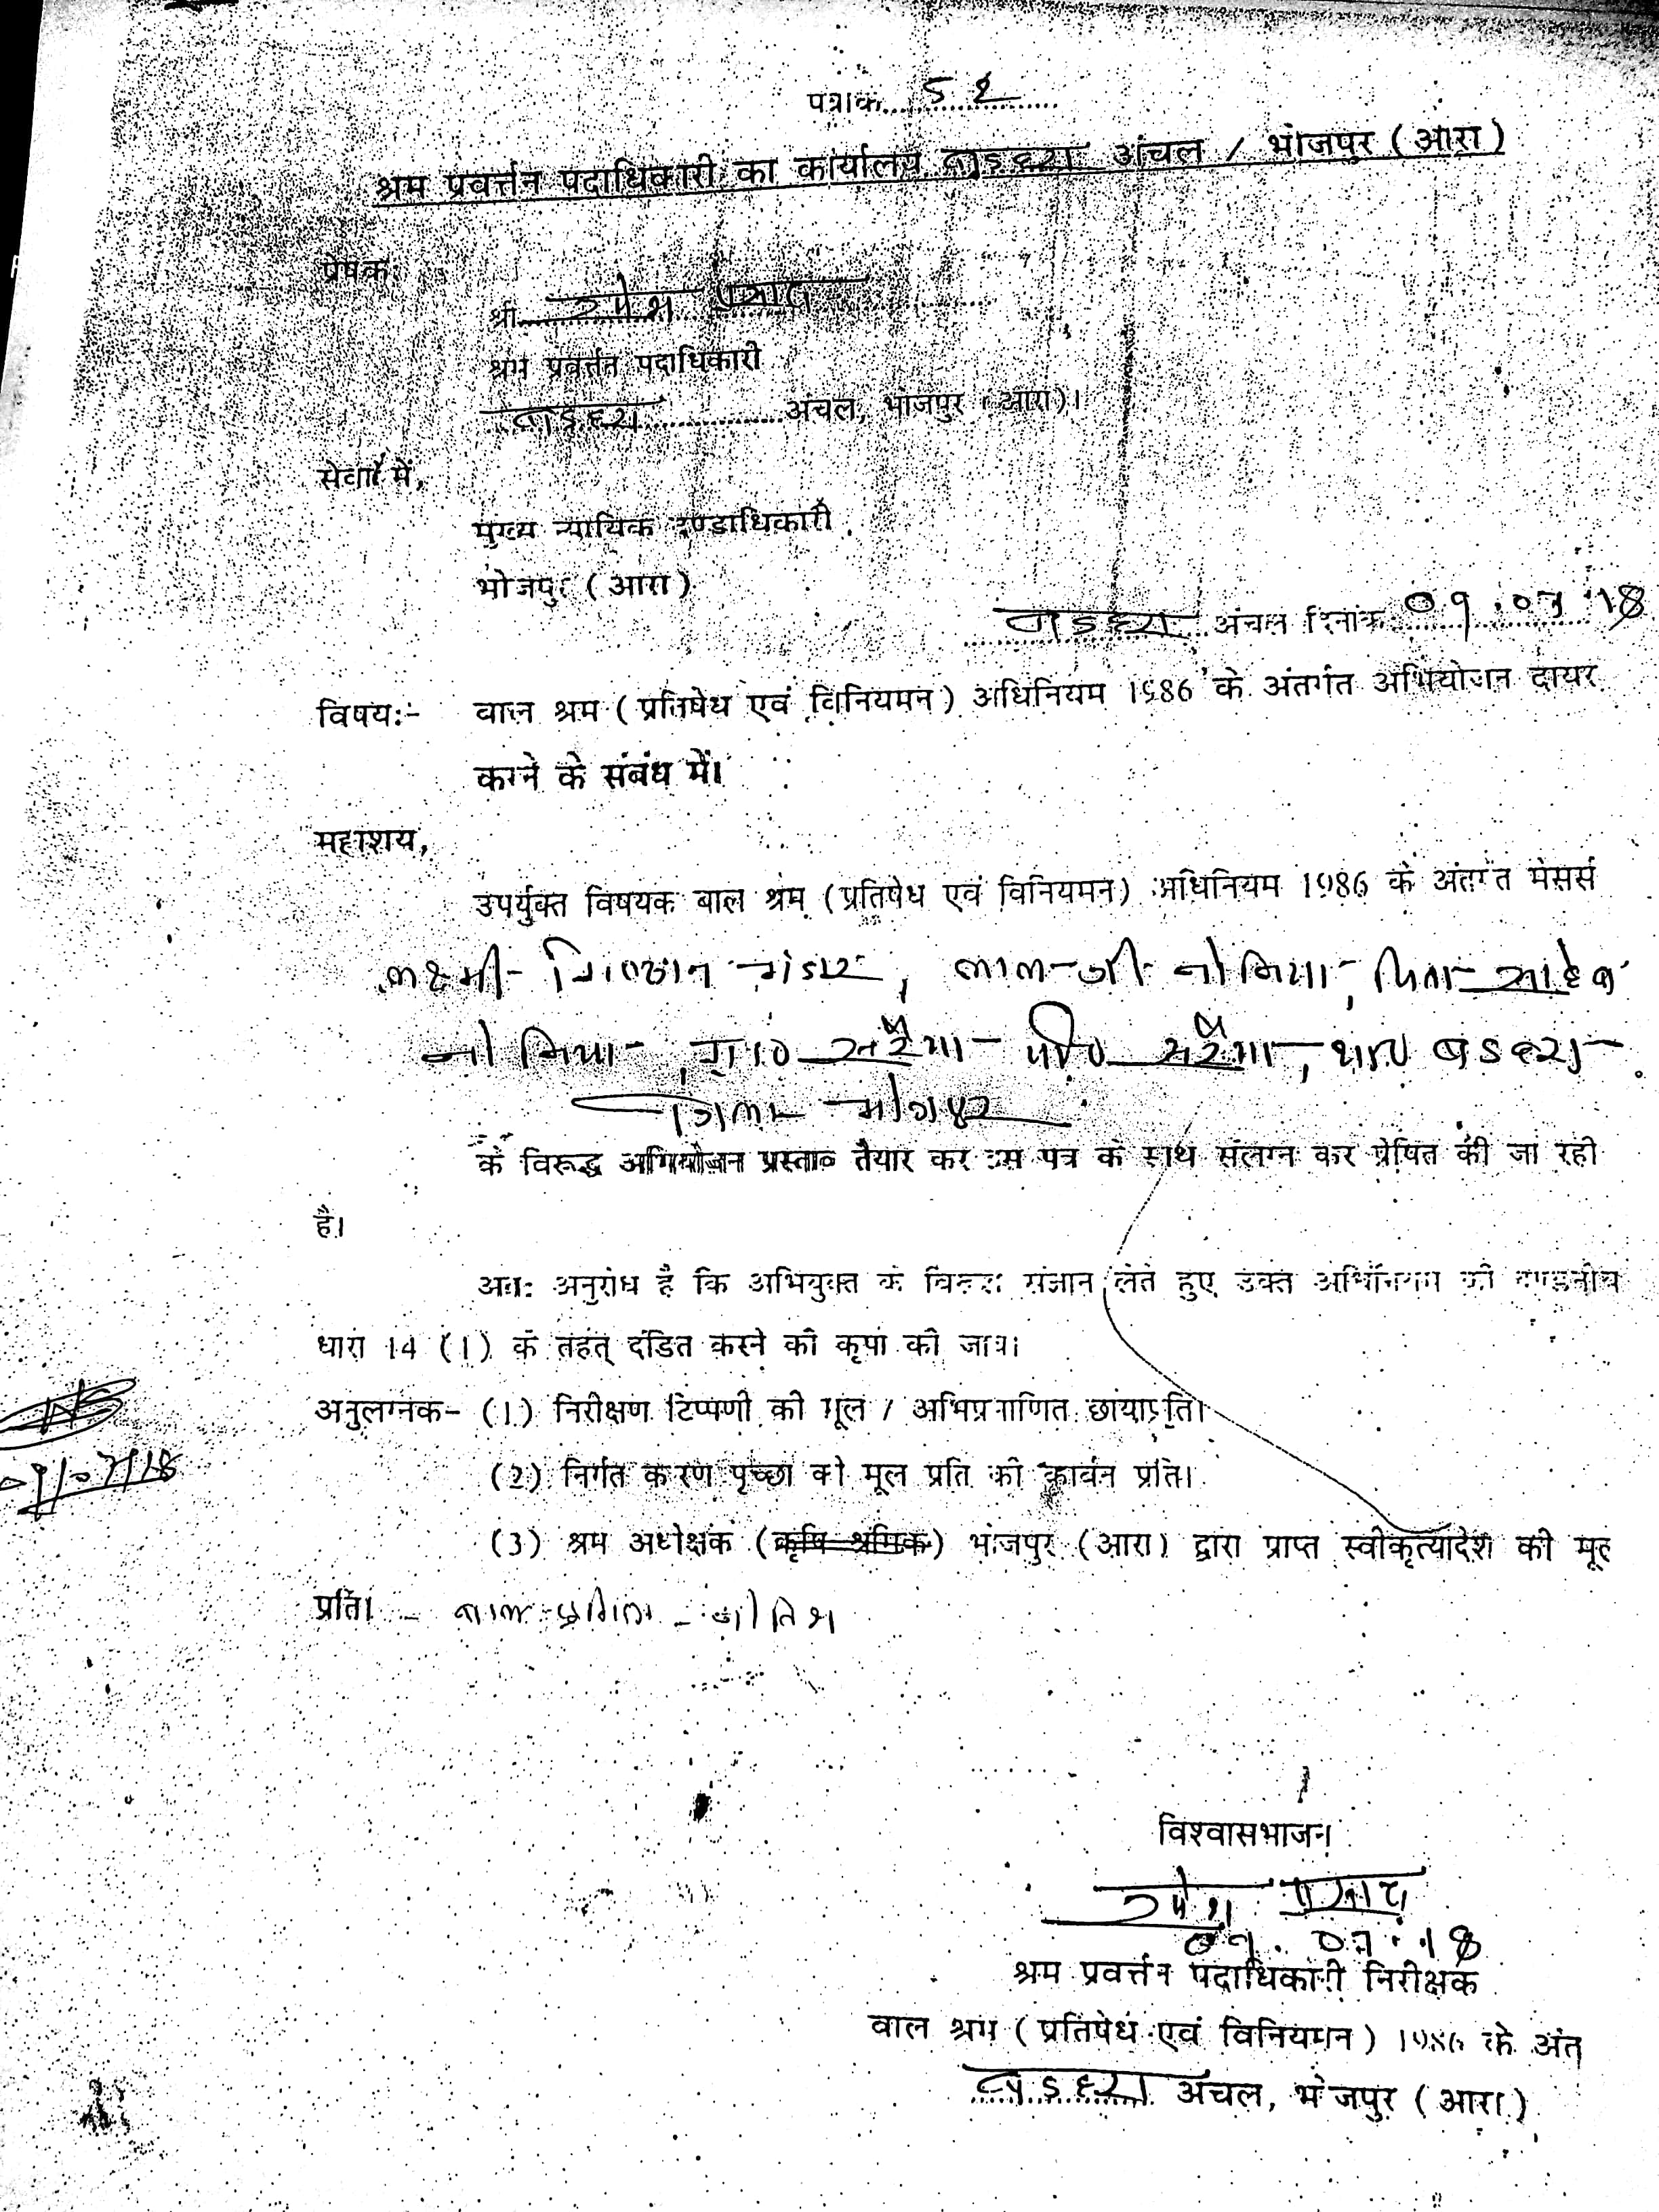 पत्रांक 52
श्रम प्रवर्त्तन पदाधिकारी का कार्यालय बड़हरा अंचल / भोजपुर (आरा)
प्रेषक,
श्री उमेश प्रसाद
श्रम प्रवर्त्तन पदाधिकारी
बड़हरा अंचल, भोजपुर (आरा)।
सेवा में,
मुख्य न्यायिक दण्डाधिकारी,
भोजपुर (आरा)
बड़हरा अंचल दिनांक 09.07.18
विषय:- बाल श्रम (प्रतिषेध एवं विनियमन) अधिनियम 1986 के अंतर्गत अभियोजन दायर
करने के संबंध में।
महाशय,
उपर्युक्त विषयक बाल श्रम (प्रतिषेध एवं विनियमन) अधिनियम 1986 के अंतर्गत मेसर्स
लक्ष्मी मिष्ठान भंडार, लाल जी नोनिया, पिता
नोनिया, ग्रा० सरैया पो० सरैया, थाना बड़हरा
जिला भोजपुर
के विरूद्ध अभियोजन प्रस्ताव तैयार कर इस पत्र के साथ संलग्न कर प्रेषित की जा रही
है।
अतः अनुरोध है कि अभियुक्त के विरूद्ध संज्ञान लेते हुए उक्त अधिनियम की दण्डनीय
धारा 14 (1) के तहत् दंडित करने की कृपा की जाय।
अनुलग्नक- (1) निरीक्षण टिप्पणी की मूल / अभिप्रमाणित छायाप्रति।
(2) निर्गत कारण पृच्छा की मूल प्रति की कार्बन प्रति।
(3) श्रम अधीक्षक (कृषि श्रमिक) भोजपुर (आरा) द्वारा प्राप्त स्वीकृत्यादेश की मूल
प्रति। - बाल श्रमिक -
09/07/18
विश्वासभाजन
उमेश प्रसाद
09.07.18
श्रम प्रवर्त्तन पदाधिकारी निरीक्षक
बाल श्रम (प्रतिषेध एवं विनियमन) 1986 के अंत
बड़हरा अंचल, भोजपुर (आरा)